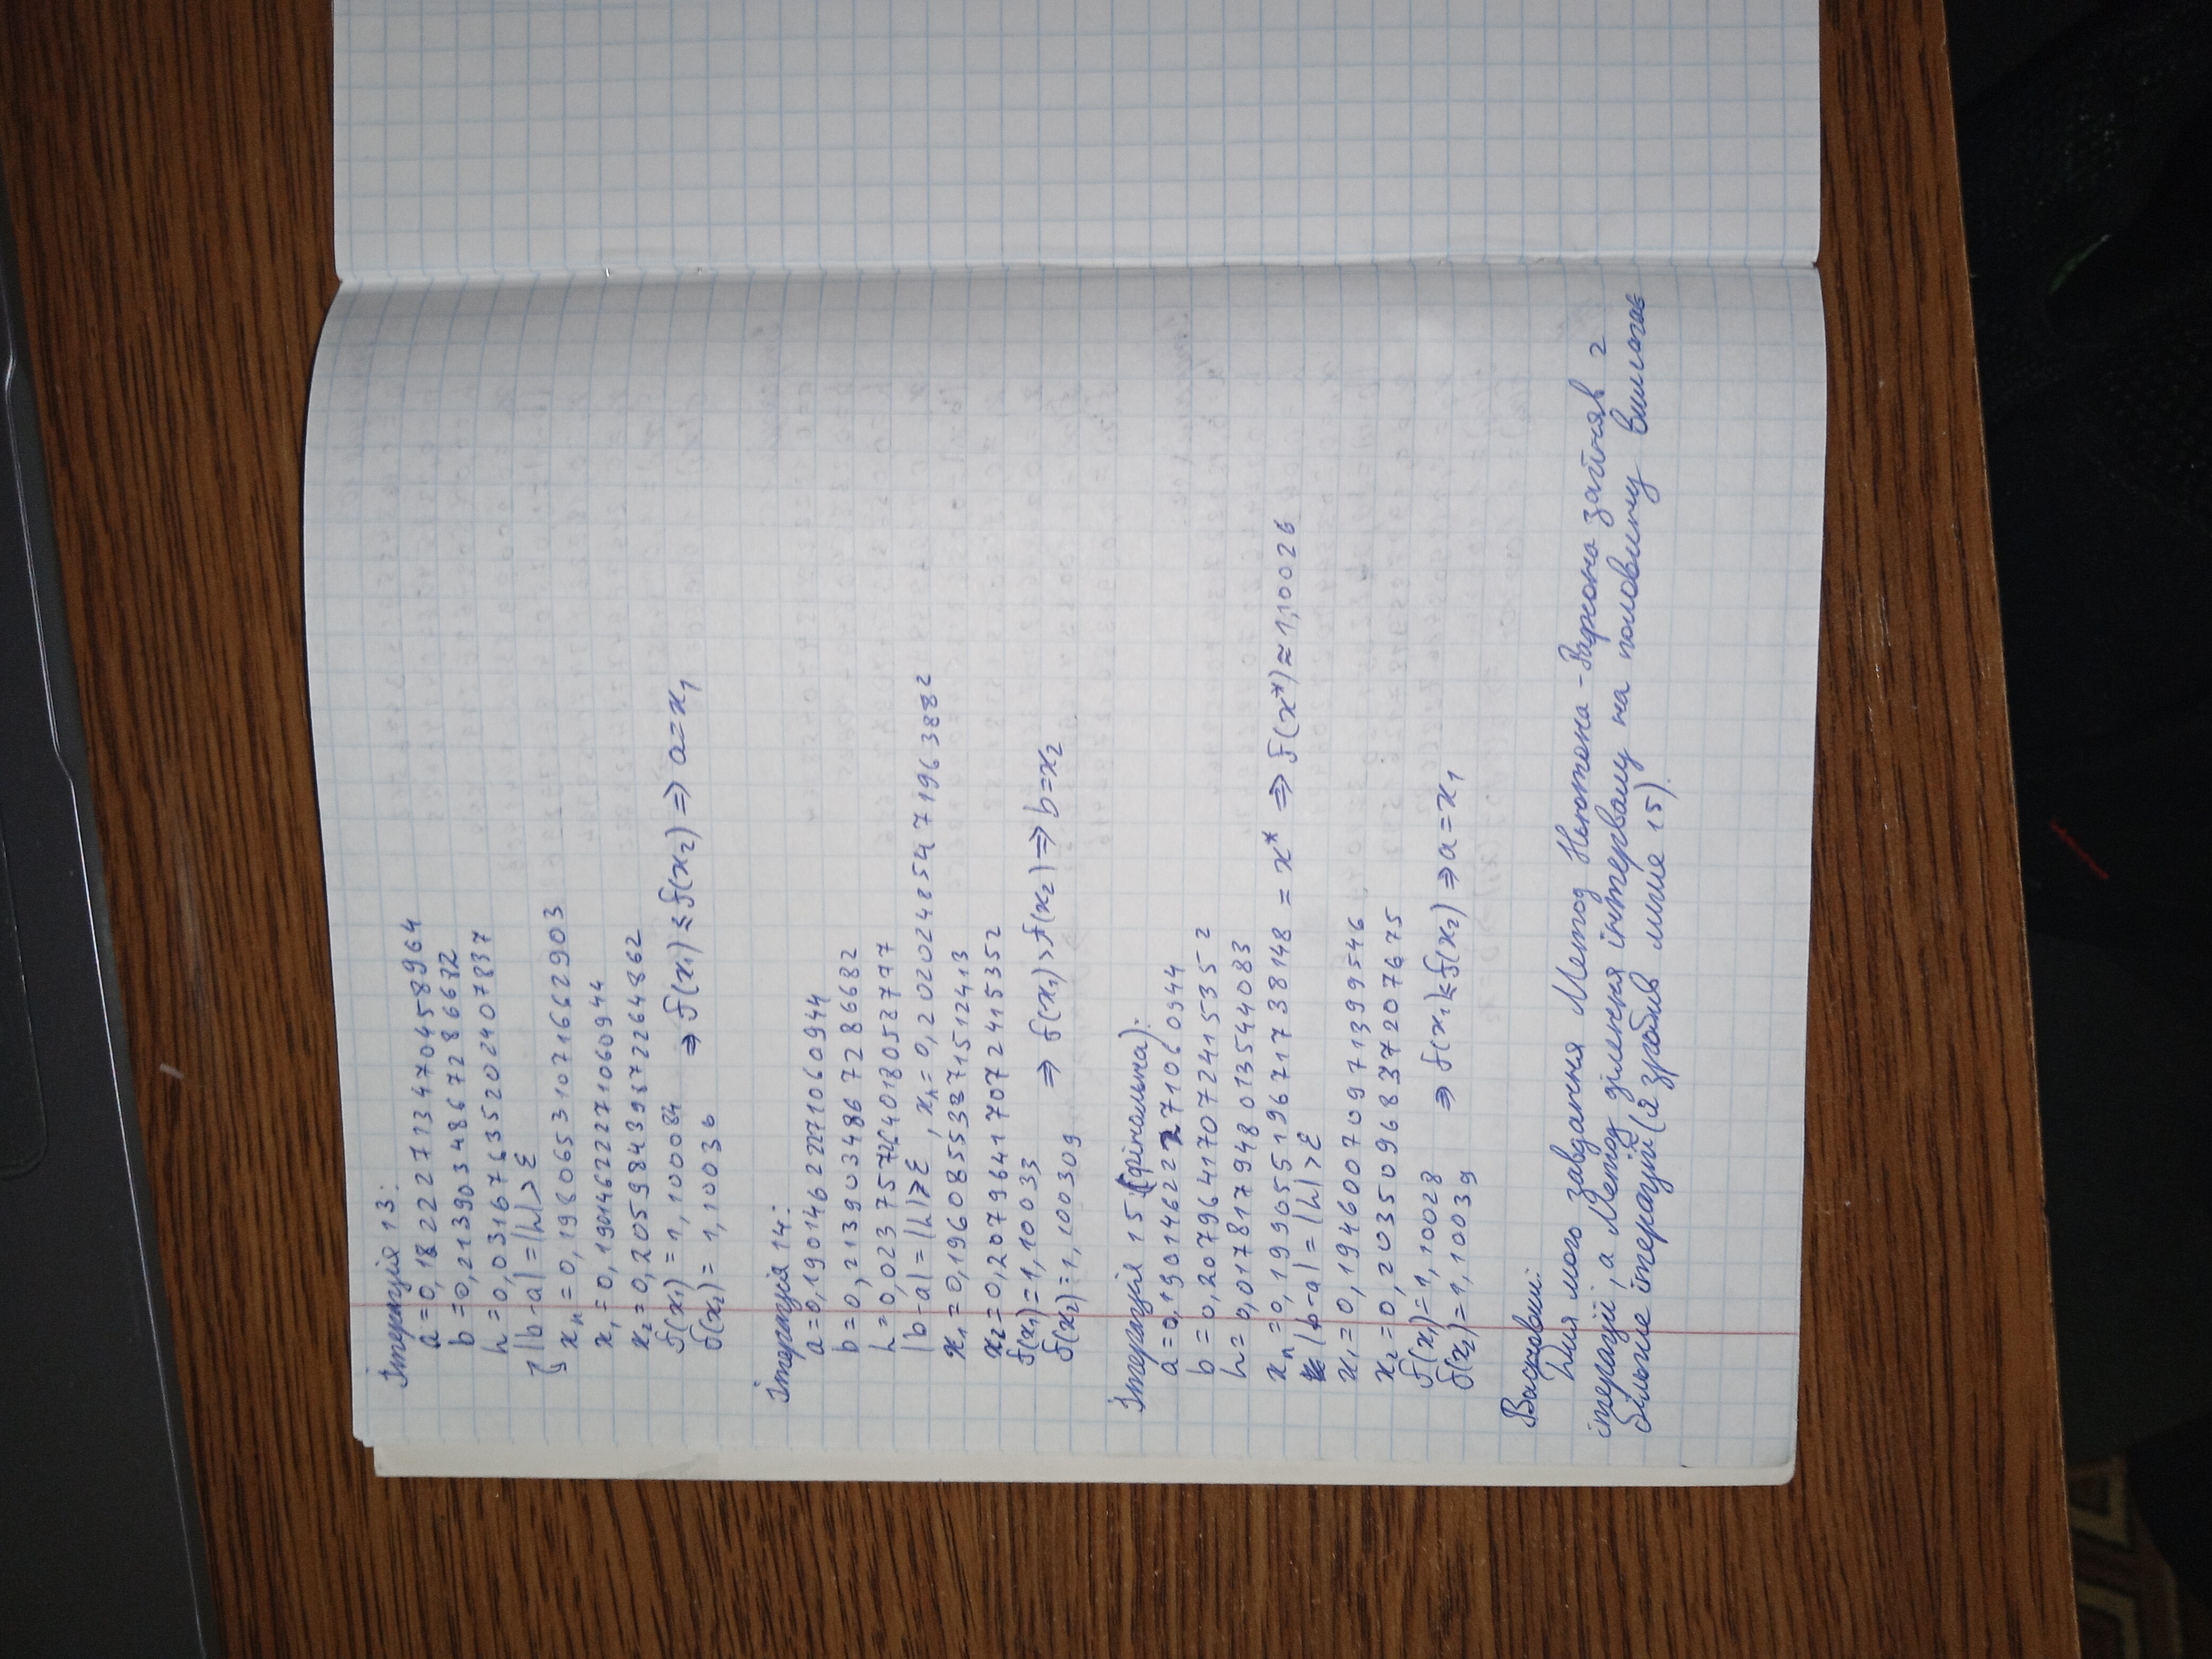 Ітерація 13:
a = 0,18222713470458964
b = 0,2139034867286682
h = 0,03167635202407837
|b-a| = |h| > ε
xₙ = 0,19806531071662903
x₁ = 0,19014622271060944
x₂ = 0,20598439872264862
f(x₁) = 1,100084
f(x₂) = 1,10036 ⇒ f(x₁) ≤ f(x₂) ⇒ a = x₁
Ітерація 14:
a = 0,19014622271060944
b = 0,2139034867286682
h = 0,023757264018058777
|b-a| = |h| > ε, xₙ = 0,20202485471963882
x₁ = 0,19608553871512413
x₂ = 0,20796417072415352
f(x₁) = 1,10033
f(x₂) = 1,100309 ⇒ f(x₁) > f(x₂) ⇒ b = x₂
Ітерація 15 (фінальна):
a = 0,19014622271060944
b = 0,20796417072415352
h = 0,017817948013544083
xₙ = 0,19905519671738148 = x* ⇒ f(x*) ≈ 1,10026
|b-a| = |h| > ε
x₁ = 0,19460070971399546
x₂ = 0,2035096837207675
f(x₁) = 1,10028
f(x₂) = 1,10039 ⇒ f(x₁) ≤ f(x₂) ⇒ a = x₁
Висновки:
Для мого завдання Метод Ньютона-Рафсона зайняв 2
ітерації, а Метод ділення інтервалу на половину вимагає
більше ітерацій (я зробив лише 15).